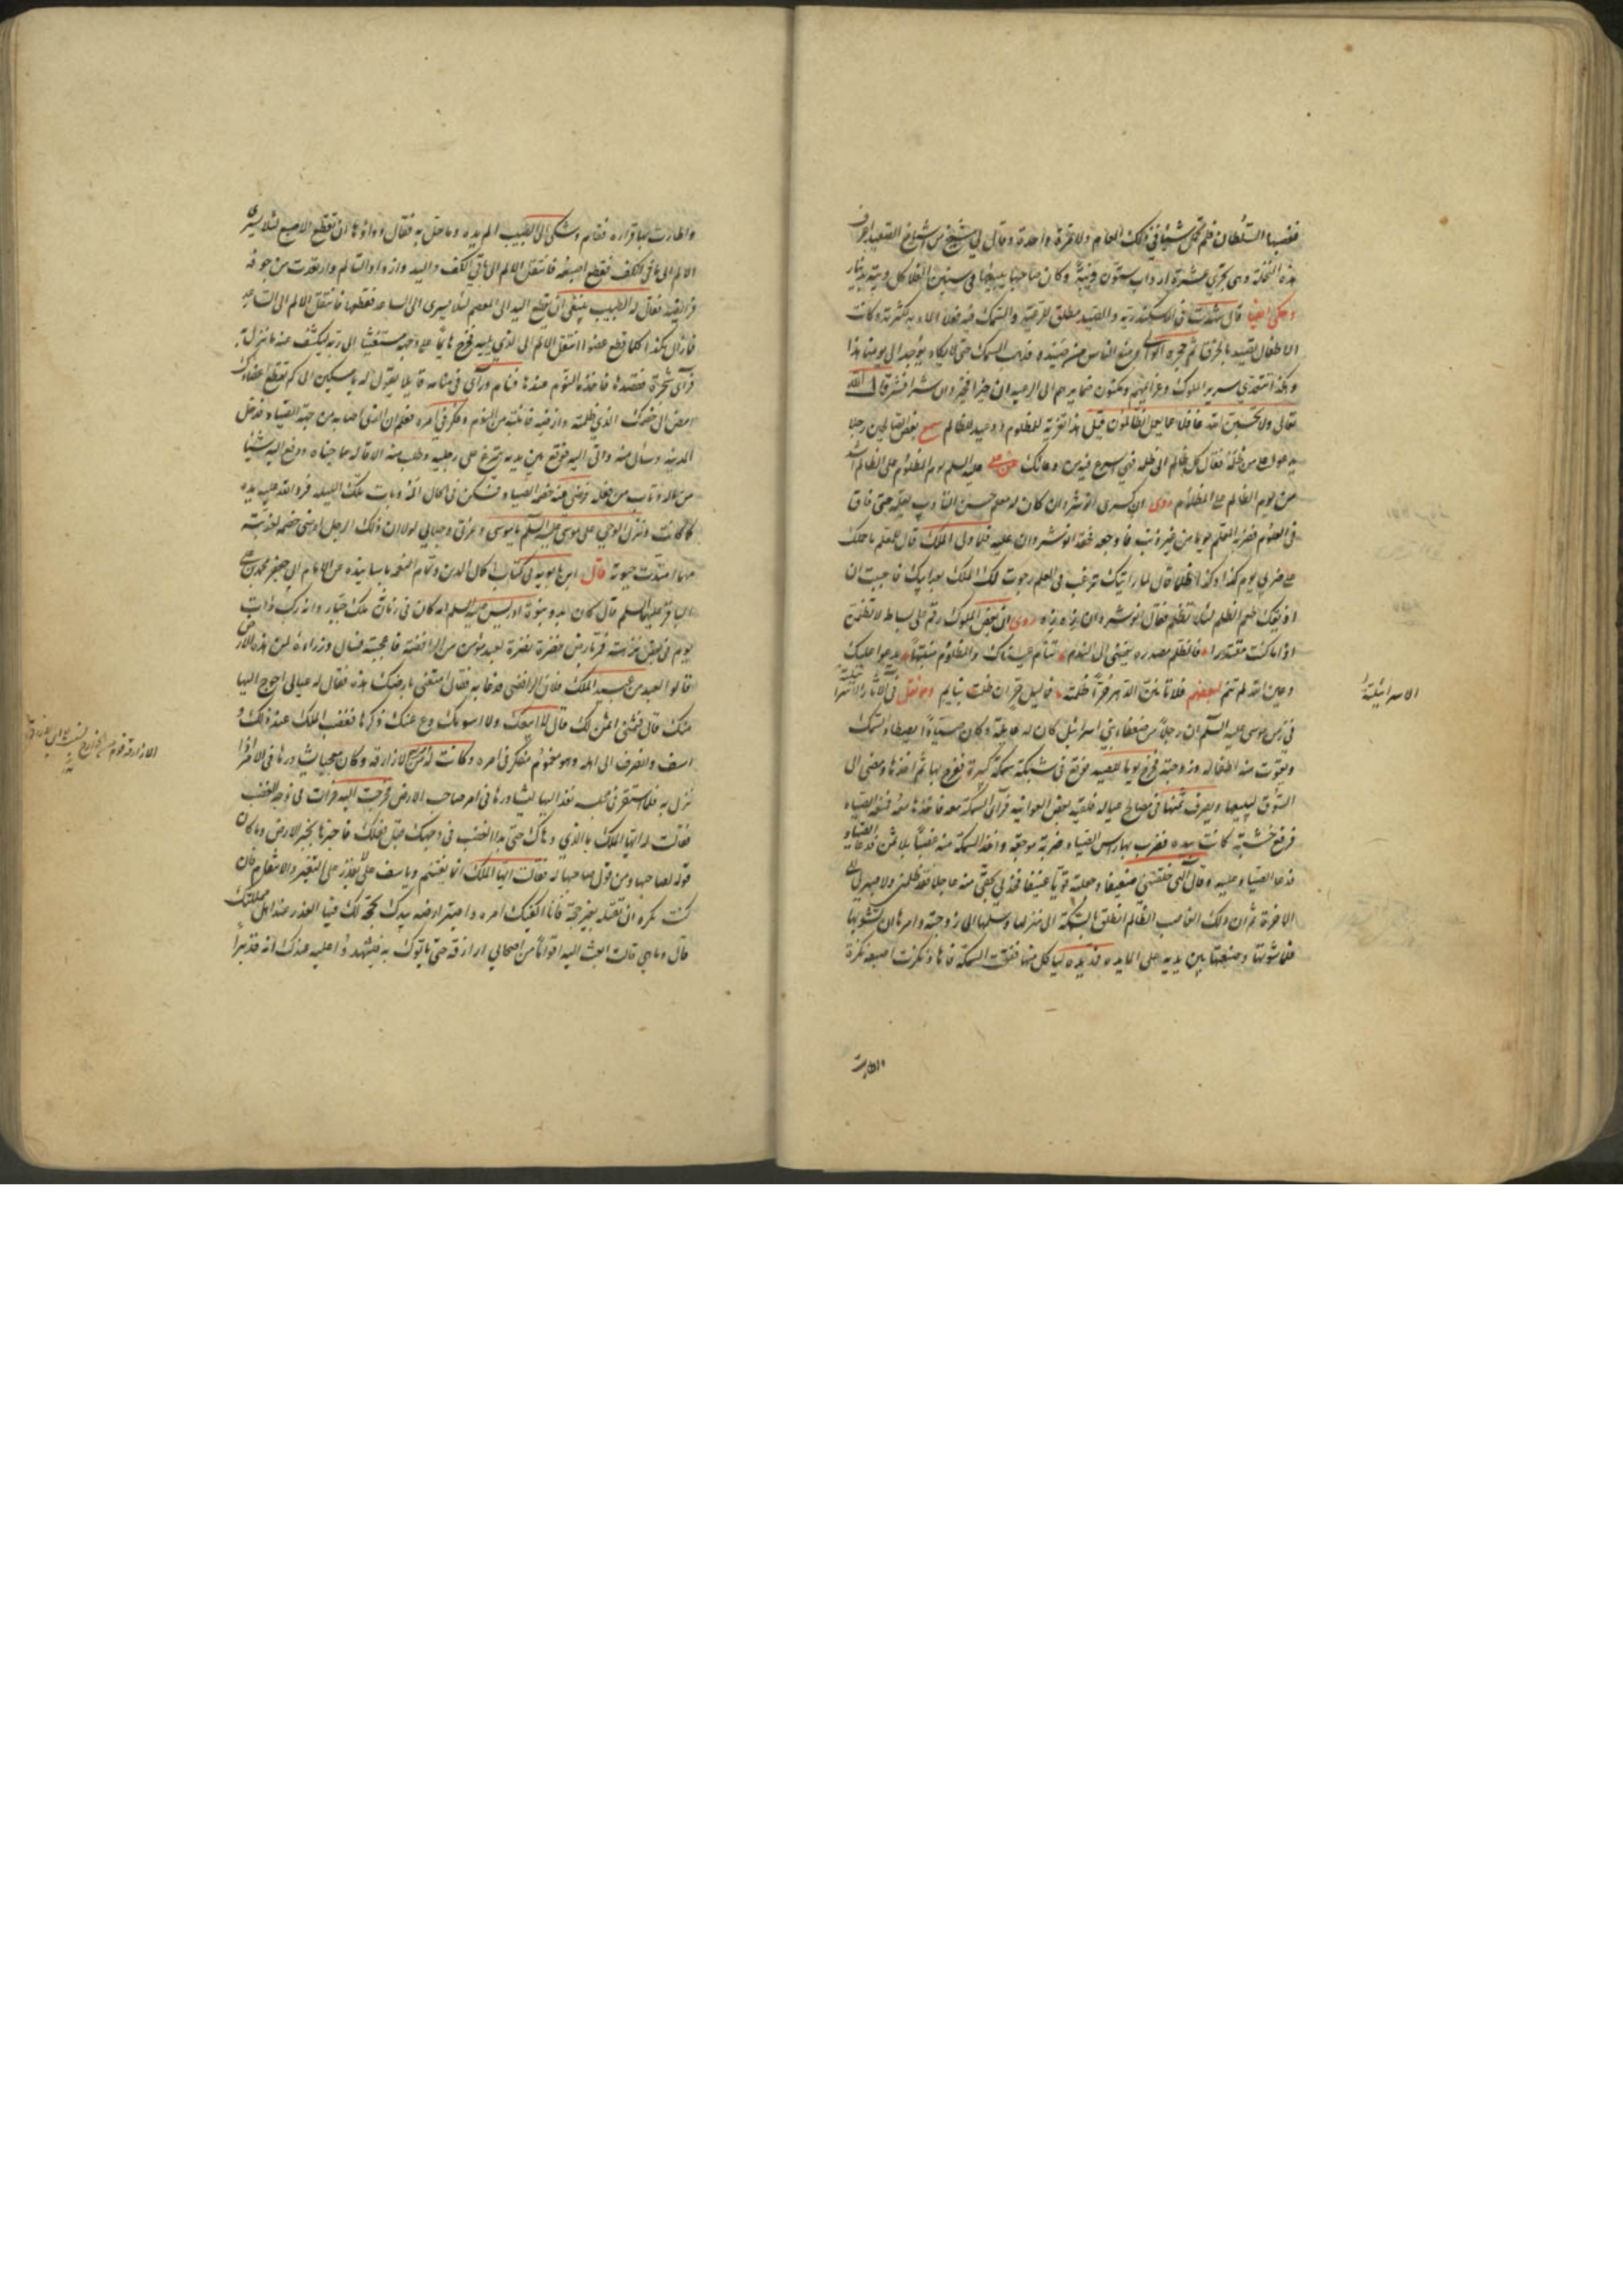 فغصبها السلطان فلم تحمل شيئا في ذلك العام ولا تمرة واحدة وقال لي شيخ من اشياخ الصعيد اعرف
هذه النخلة وهي تجني عشرة ارداب ستون ويبة وكان صاحبها يبيعها في سنين الغلا كل ويبة بدينار
وحكى ايضا قال شهدت في الاسكندرية والصيد مطلق للرعية والسمك فيه
الاطفال تصيده بالخرق ثم حجره الوالي ومنع الناس من صيده فذهب السمك حتى لا يكاد يوجد الى يومنا هذا
وهكذا تتعدى سرير الملوك وعزائمهم ومكنون ضمايرهم الى الرعية ان خيرا فخير وان شرا فشر قال الله
تعالى ولا تحسبن الله غافلا عما يعمل الظالمون قيل هذا تعزية للمظلوم ووعيد للظالم سمع بعض الصالحين رجلا
يدعو على من ظلمه فقال كل الظالم الى ظلمه فهي اسرع فيه من دعائك عن علي عليه السلم يوم المظلوم على الظالم اشد
من يوم الظالم على المظلوم روى ان كسرى انوشروان كان له معلم حسن التأديب يعلمه حتى فاق
في العلوم فضربه المعلم يوما من غير ذنب فاوجعه فحقد انوشروان عليه فلما ولى الملك قال للمعلم ما حملك
على ضربي يوم كذا وكذا ظلما قال لما رايتك ترغب في العلم رجوت لك الملك بعد ابيك فاحببت ان
اذيقك طعم الظلم لئلا تظلم فقال انوشروان زه زه روى ان بعض الملوك رقم على بساط لا تظلمن
اذا ما كنت مقتدرا فالظلم مصدره يفضي الى الندم تنام عيناك والمظلوم منتبه يدعو عليك
وعين الله لم تنم لبعضهم فلا تامنن الدهر حرا ظلمته فما ليل حر ان ظلمت بنايم ومما نقل في الآثار الاسرائيلية
في زمن موسى عليه السلم ان رجلا من ضعفاء بني اسرائيل كان له عايلة وكان صيادا يصطاد السمك
ويقوت منه اطفاله وزوجته فخرج يوما للصيد فوقع في شبكته سمكة كبيرة ففرح بها ثم اخذها ومضى الى
السوق ليبيعها ويصرف ثمنها في مصالح عياله فلقيه بعض العوانية فرأى السمكة معه فاخذها منه فمنعه الصياد
فرفع خشبة كانت بيده فضرب بها راس الصياد ضربة موجعة واخذ السمكة منه غصبا بلا ثمن
فدعا الصياد عليه وقال الهي خلقتني ضعيفا وجعلته قويا عنيفا فخذ لي بحقي منه عاجلا فقد ظلمني ولا صبر لي الى
الاخرة ثم ان ذلك الغاصب الظالم انطلق بالسمكة الى منزله وسلمها الى زوجته وامرها ان تشويها
فلما شوتها وضعتها بين يديه على المايدة فمد يده لياكل منها ففتحت السمكة فاها ونكزت اصبعه نكزة
الاسرائيلية
واطارت بها قراره فقام وشكى الى الطبيب الم يده وما حل به فقال دواؤها ان تقطع الاصبع لئلا يسري
الالم الى باقي الكف فقطع اصبعه فانتقل الالم الى باقي الكف واليد وازداد التالم وارتعدت من خوفه
فرائصه فقال له الطبيب ينبغي ان تقطع اليد الى المعصم لئلا يسري الى الساعد فقطعها فانتقل الالم الى الساعد
فما زال هكذا كلما قطع عضوا انتقل الالم الى الذي يليه فخرج هايما على وجهه مستغيثا الى ربه ليكشف عنه ما نزل به
فرآى شجرة فقصدها فاخذه النوم عندها فنام ورآى في منامه قايلا يقول له يا مسكين الى كم تقطع اعضاءك
امض الى خصمك الذي ظلمته وارضه فانتبه من النوم وفكر في امره فعلم ان الذي اصابه من جهة الصياد فدخل
المدينة وسال منه واتى اليه فوقع بين يديه يتمرغ على رجليه وطلب منه الاقالة مما جناه ودفع اليه شيئا
من ماله وتاب من فعله فرضي عنه خصمه الصياد فسكن في الحال المه وبات تلك الليلة فرد الله عليه يده
كما كانت ونزل الوحي على موسى عليه السلم يا موسى وعزتي وجلالي لولا ان ذلك الرجل ارضى خصمه لعذبته
مهما امتدت حيوته قال ابن بابويه في كتاب اكمال الدين وتمام النعمة باسانيده عن الامام ابي جعفر محمد بن علي
الباقر عليهما السلم قال كان بدو نبوة ادريس عليه السلم انه كان في زمانه ملك جبار وانه ركب ذات
يوم في بعض نزهته فمر بارض خضرة نضرة لعبد مؤمن من الرافضة فاعجبته فسال وزراءه لمن هذه الارض
فقالوا لعبد من عبيد الملك فلان الرافضي فدعا به فقال امتعني بارضك هذه فقال له عيالي احوج اليها
منك قال فسمني اثمن لك قال لا امتعك ولا اسومك دع عنك ذكرها فغضب الملك عند ذلك و
اسف وانصرف الى اهله وهو مغموم متفكر في امره وكانت له امرأة من الازارقة وكان معجبا بها يشاورها في الامر اذا
نزل به فلما استقر في مجلسه بعث اليها ليشاورها في امر صاحب الارض فخرجت اليه فرات في وجهه الغضب
فقالت له ايها الملك ما الذي دهاك حتى بدا الغضب في وجهك قبل فعلك فاخبرها بخبر الارض وما كان
قوله لصاحبها ومن قول صاحبها له فقالت ايها الملك انما يغتم وياسف من لا يقدر على التغيير والانتقام فان
كنت تكره ان تقتله بغير حجة فانا اكفيك امره واصير ارضه بيدك بحجة لك فيها العذر عند اهل مملكتك
قال وما هي قالت ابعث اليه اقواما من اصحابي ازارقة حتى ياتوك به فيشهدوا عليه عندك انه قد برأ